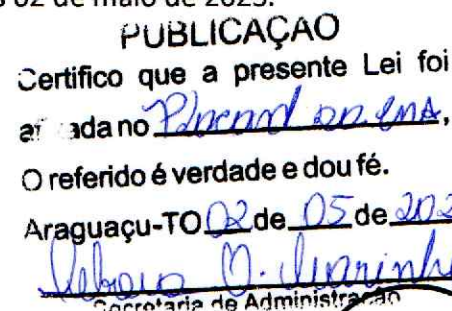 02 de maio de 2023.
PUBLICAÇAO
Certifico que a presente Lei foi
af adano
O referido é verdade e dou fé.
Araguaçu-TO 02 de 05 de 202
Secretaria de Administração